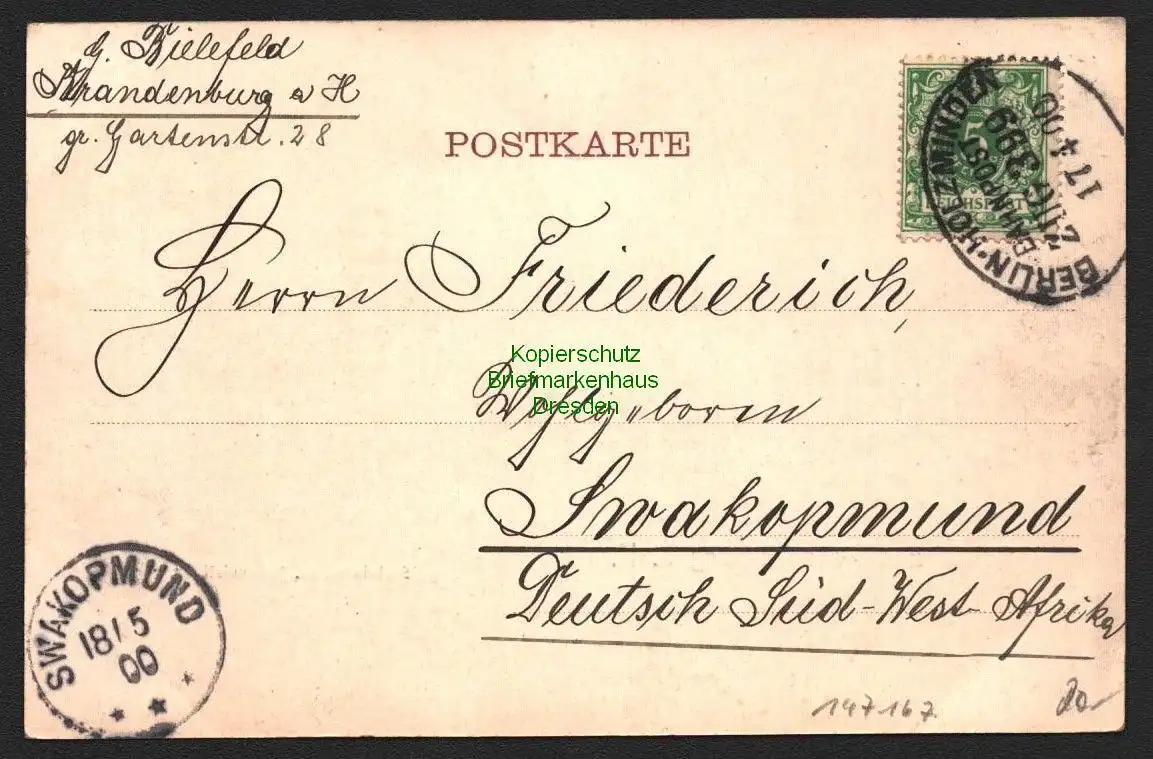 G. Bielefeld
Brandenburg a H
gr. Gartenstr. 28
POSTKARTE
5
REICHSPOST
BERLIN-HOLZMINDEN
BAHNPOST
ZUG 399
17 4 00
Herrn Friederich,
Kopierschutz
Briefmarkenhaus
Dresden
Wohlgeboren
Swakopmund
Deutsch Süd-West Afrika
SWAKOPMUND
18/5
00
147167